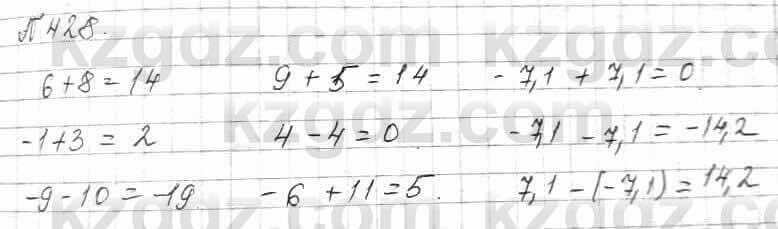 № 428.
6+8=14 9+5=14 -7,1+7,1=0
-1+3=2 4-4=0 -7,1-7,1=-14,2
-9-10=-19. -6+11=5. 7,1-(-7,1)=14,2
kzgdz.com